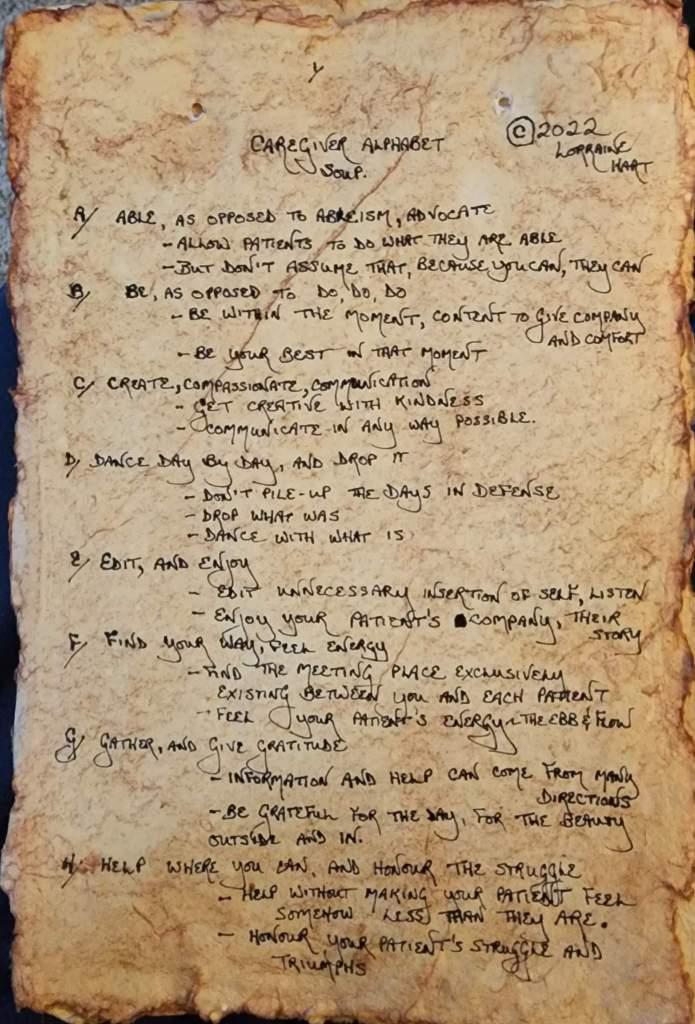 CAREGIVER ALPHABET
SOUP.
©2022
LORRAINE
HART
A/ ABLE, AS OPPOSED TO ABLEISM, ADVOCATE
- ALLOW PATIENTS TO DO WHAT THEY ARE ABLE
- BUT DON'T ASSUME THAT, BECAUSE YOU CAN, THEY CAN
B/ BE, AS OPPOSED TO DO, DO, DO
- BE WITHIN THE MOMENT, CONTENT TO GIVE COMPANY
AND COMFORT
- BE YOUR BEST IN THAT MOMENT
C/ CREATE, COMPASSIONATE, COMMUNICATION
- GET CREATIVE WITH KINDNESS
- COMMUNICATE IN ANY WAY POSSIBLE.
D/ DANCE DAY BY DAY, AND DROP IT
- DON'T PILE-UP THE DAYS IN DEFENSE
- DROP WHAT WAS
- DANCE WITH WHAT IS
E/ EDIT, AND ENJOY
- EDIT UNNECESSARY INSERTION OF SELF, LISTEN
- ENJOY YOUR PATIENT'S COMPANY, THEIR
STORY
F/ FIND YOUR WAY, FEEL ENERGY
- FIND THE MEETING PLACE EXCLUSIVELY
EXISTING BETWEEN YOU AND EACH PATIENT
- FEEL YOUR PATIENT'S ENERGY ~ THE EBB & FLOW
G/ GATHER, AND GIVE GRATITUDE
- INFORMATION AND HELP CAN COME FROM MANY
DIRECTIONS
- BE GRATEFUL FOR THE DAY, FOR THE BEAUTY
OUTSIDE AND IN.
H/ HELP WHERE YOU CAN, AND HONOUR THE STRUGGLE
- HELP WITHOUT MAKING YOUR PATIENT FEEL
SOMEHOW LESS THAN THEY ARE.
- HONOUR YOUR PATIENT'S STRUGGLE AND
TRIUMPHS